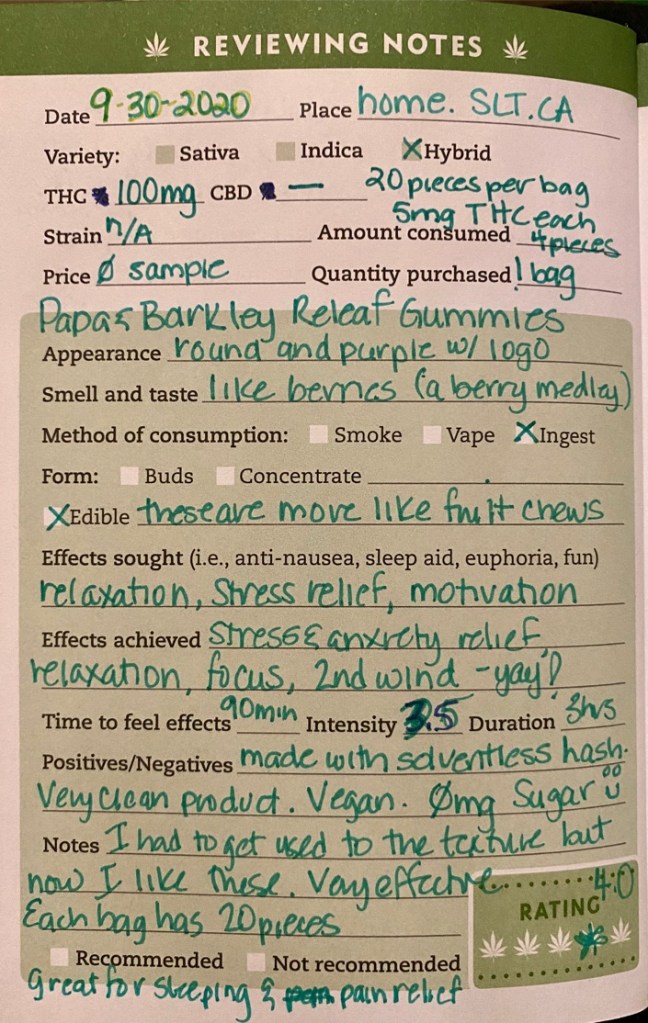 REVIEWING NOTES
Date 9-30-2020 Place home. SLT.CA
Variety: Sativa Indica X Hybrid
THC 100mg CBD — 20 pieces per bag
5mg THC each
Strain n/A Amount consumed 4 pieces
Price Ø sample Quantity purchased 1 bag
Papa & Barkley Releaf Gummies
Appearance round and purple w/ logo
Smell and taste like berries (a berry medley)
Method of consumption: Smoke Vape X Ingest
Form: Buds Concentrate
X Edible these are more like fruit chews
Effects sought (i.e., anti-nausea, sleep aid, euphoria, fun)
relaxation, stress relief, motivation
Effects achieved stress & anxiety relief
relaxation, focus, 2nd wind - yay!
Time to feel effects 90min Intensity 3.5 Duration 3hrs
Positives/Negatives made with solventless hash.
Very clean product. Vegan. Ømg Sugar
Notes I had to get used to the texture but
now I like these. Very effective
4.0
RATING
Each bag has 20 pieces
Recommended Not recommended
Great for sleeping & pain relief